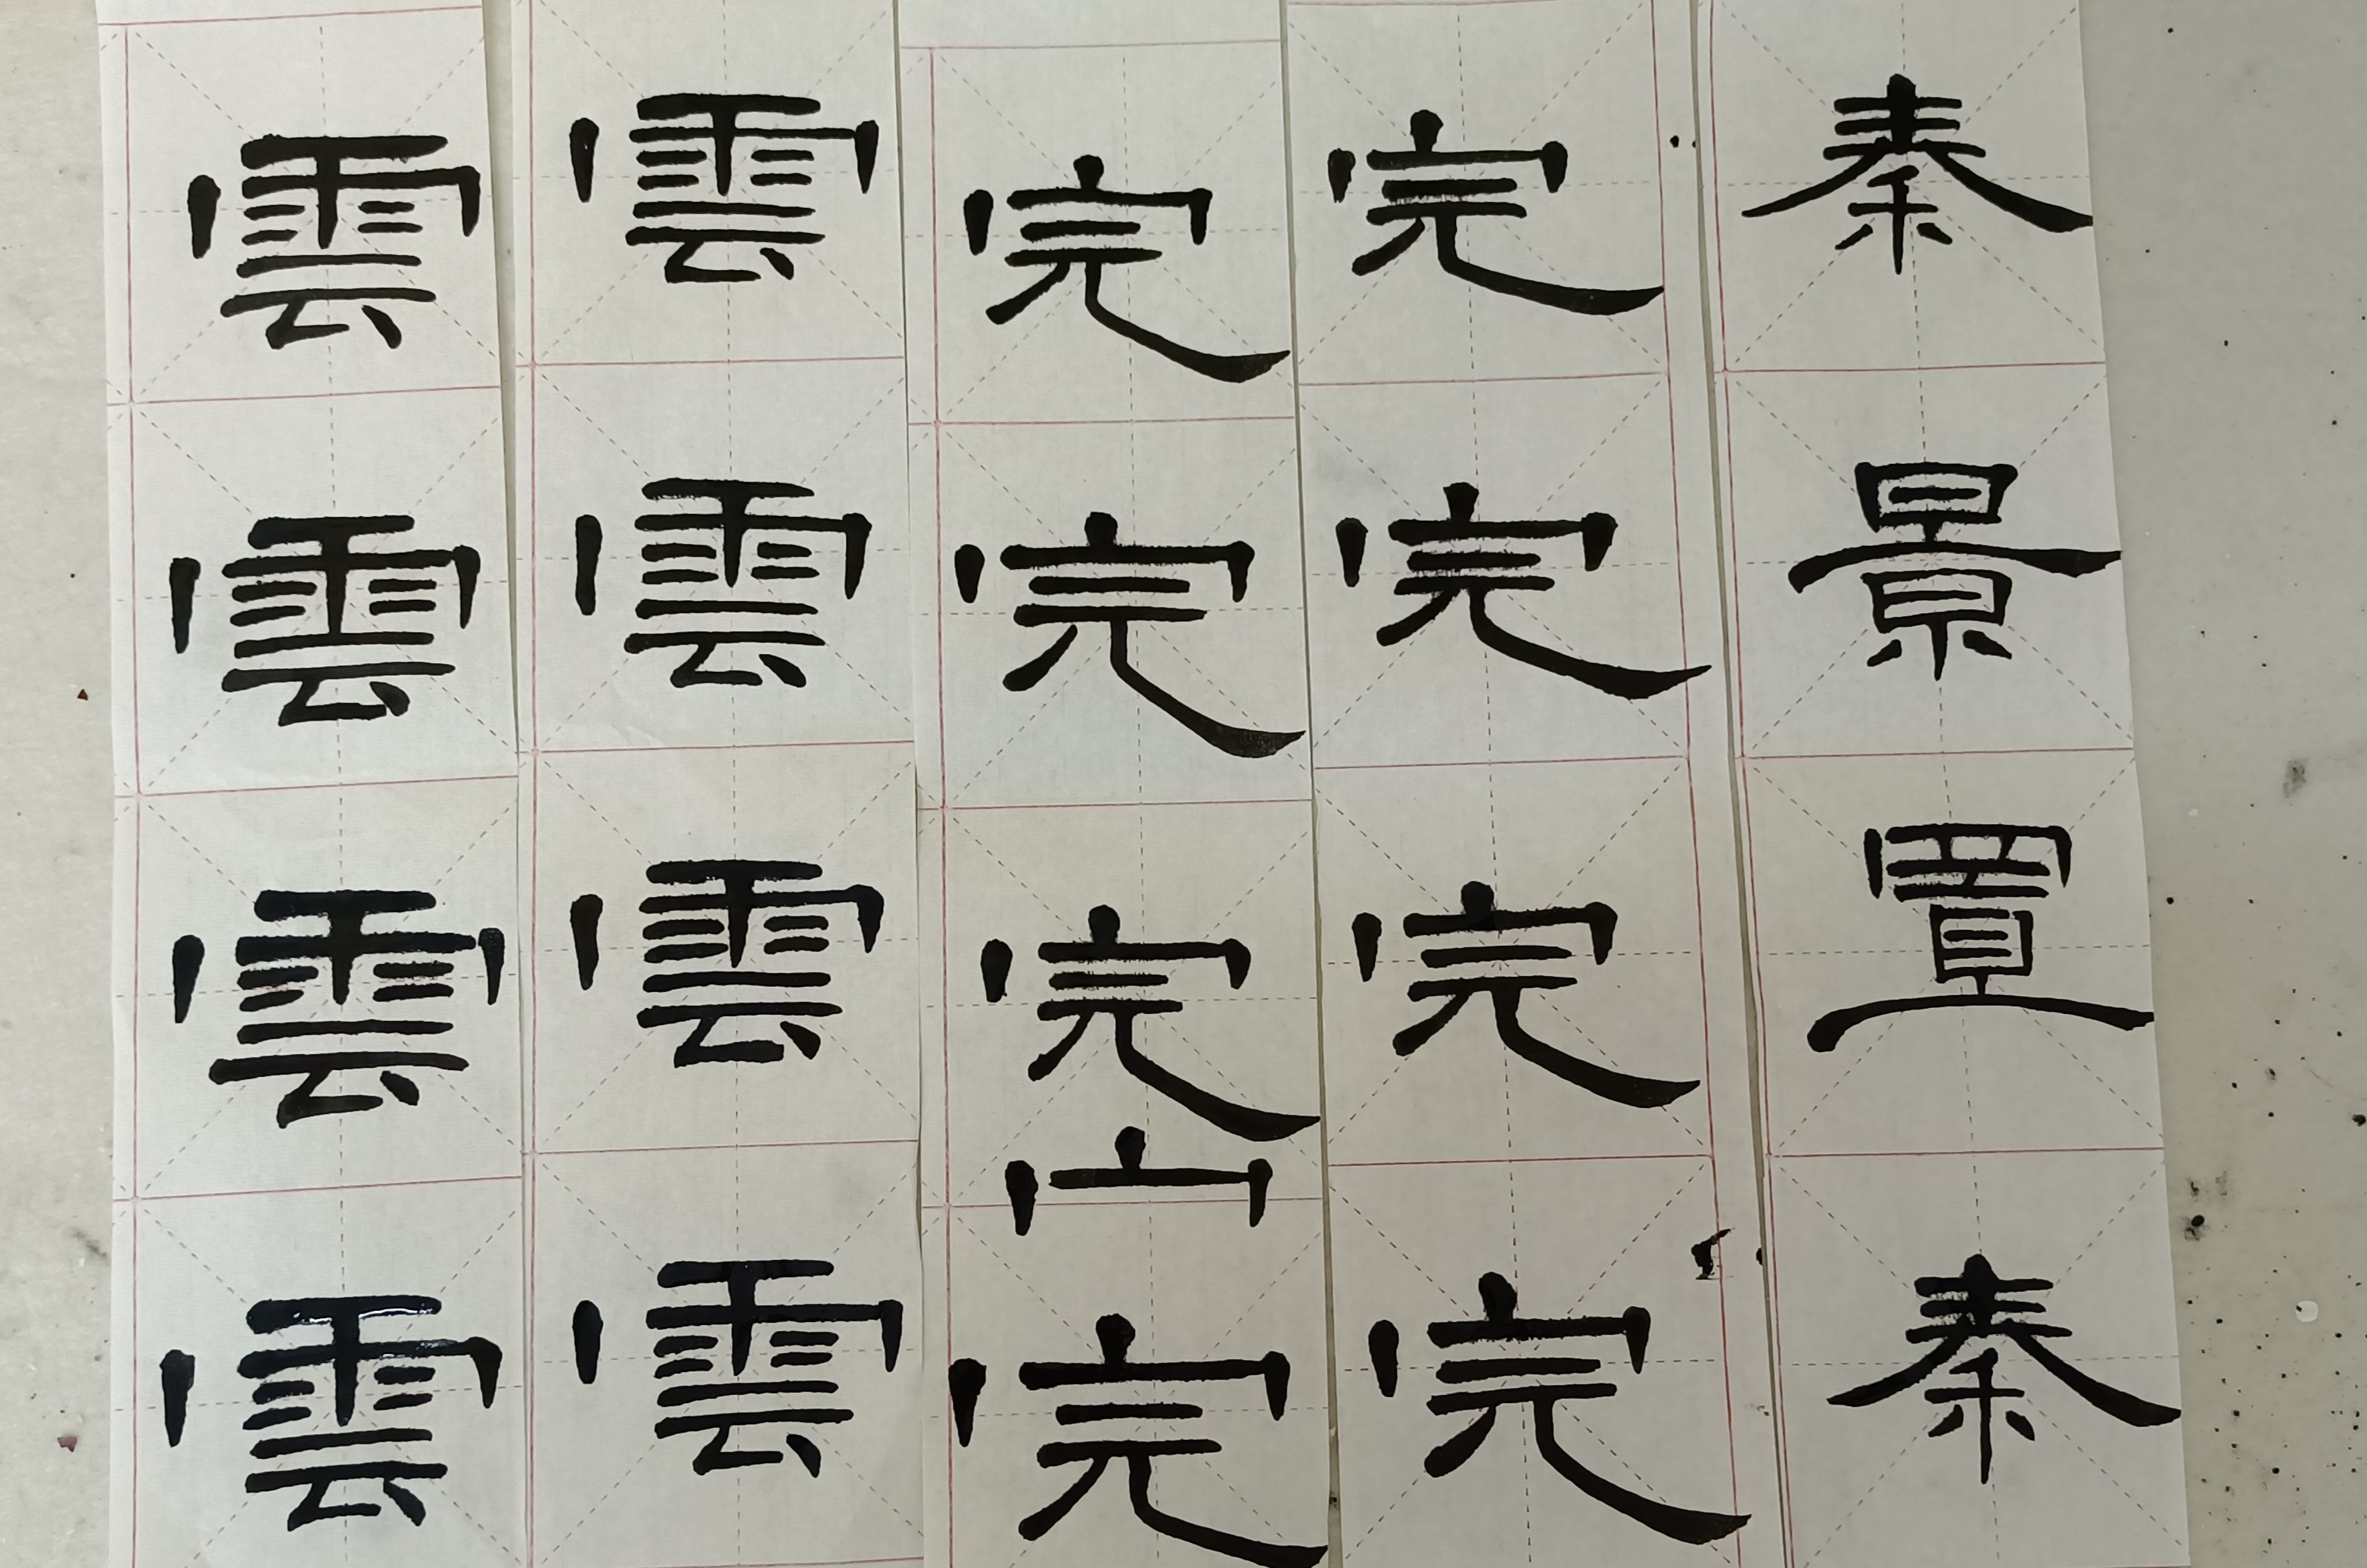 秦景置秦
完完完完
完完完宀完
雲雲雲雲
雲雲雲雲